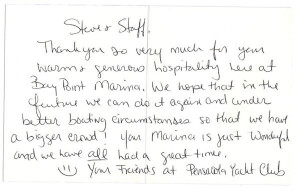 Steve & Staff,
Thank you so very much for your
warm & generous hospitality here at
Bay Point Marina. We hope that in the
future we can do it again and under
better boating circumstances so that we have
a bigger crowd! Your Marina is just Wonderful
and we have all had a great time.
☺ Your Friends at Pensacola Yacht Club